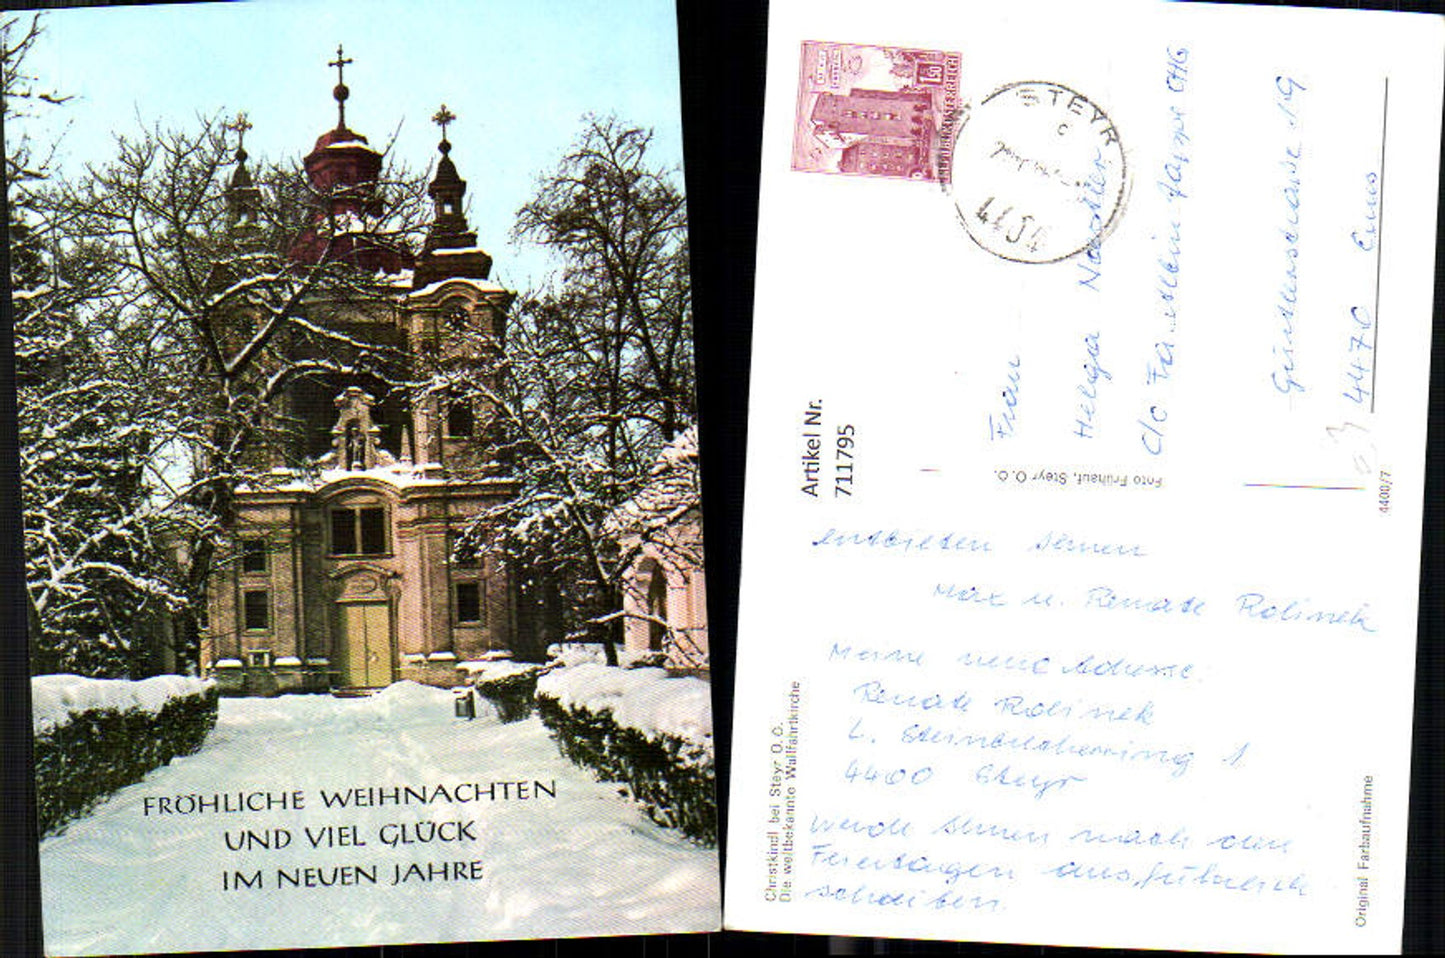 FRÖHLICHE WEIHNACHTEN
UND VIEL GLÜCK
IM NEUEN JAHRE
Artikel Nr.
711795
REPUBLIK ÖSTERREICH
1.50
STEYR
Frau
Helga
c/o
19
4470 Enns
Foto Frühauf, Steyr O. Ö.
4400/7
entbieten Ihnen
Max u. Renate Rolinek
Meine neue Adresse:
Renate Rolinek
1
4400 Steyr
Werde Ihnen nach den
Feiertagen ausführlich
schreiben.
Christkindl bei Steyr O. Ö.
Die weltbekannte Wallfahrtkirche
Original Farbaufnahme